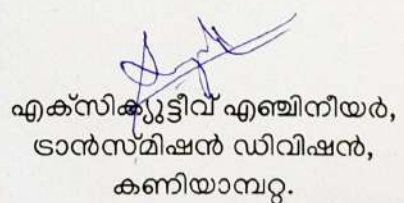 എക്സിക്യുട്ടീവ് എഞ്ചിനീയർ,
ട്രാൻസ്മിഷൻ ഡിവിഷൻ,
കണിയാമ്പറ്റ.